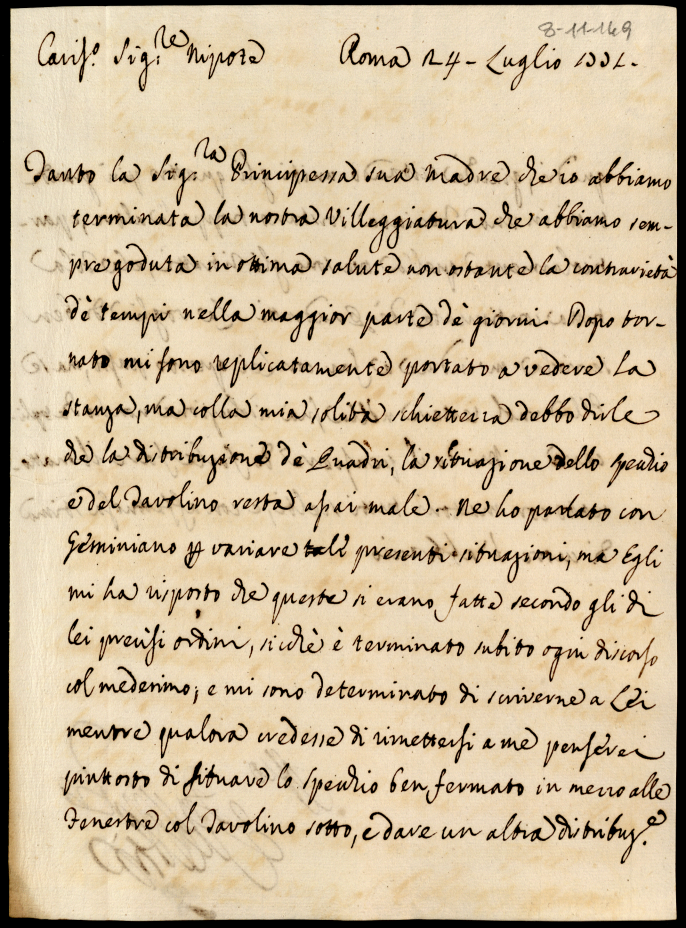 8-11-149
Cariss.o Sig.re Nipote Roma 24 - Luglio
Tanto la Sig.ra Principessa sua Madre che io abbiamo
terminata la nostra Villeggiatura che abbiamo sem-
pre goduta in ottima salute non ostante la contrarietà
dè tempi nella maggior parte dè giorni. Dopo tor-
nato mi sono replicatamente portato a vedere la
stanza, ma colla mia solita schiettezza debbo dirle
che la distribuzione dè Quadri, la situazione dello specchio
e del Tavolino resta assai male. Ne ho parlato con
Geminiano p variare tali presenti situazioni, ma Egli
mi ha risposto che queste si erano fatte secondo gli di
lei precisi ordini, sicchè è terminato subito ogni discorso
col medesimo; e mi sono determinato di scriverne a Lei
mentre qualora credesse di rimettersi a me penserei
piuttosto di situare lo specchio ben fermato in mezzo alle
Fenestre col Tavolino sotto, e dare un altra distribuz.e